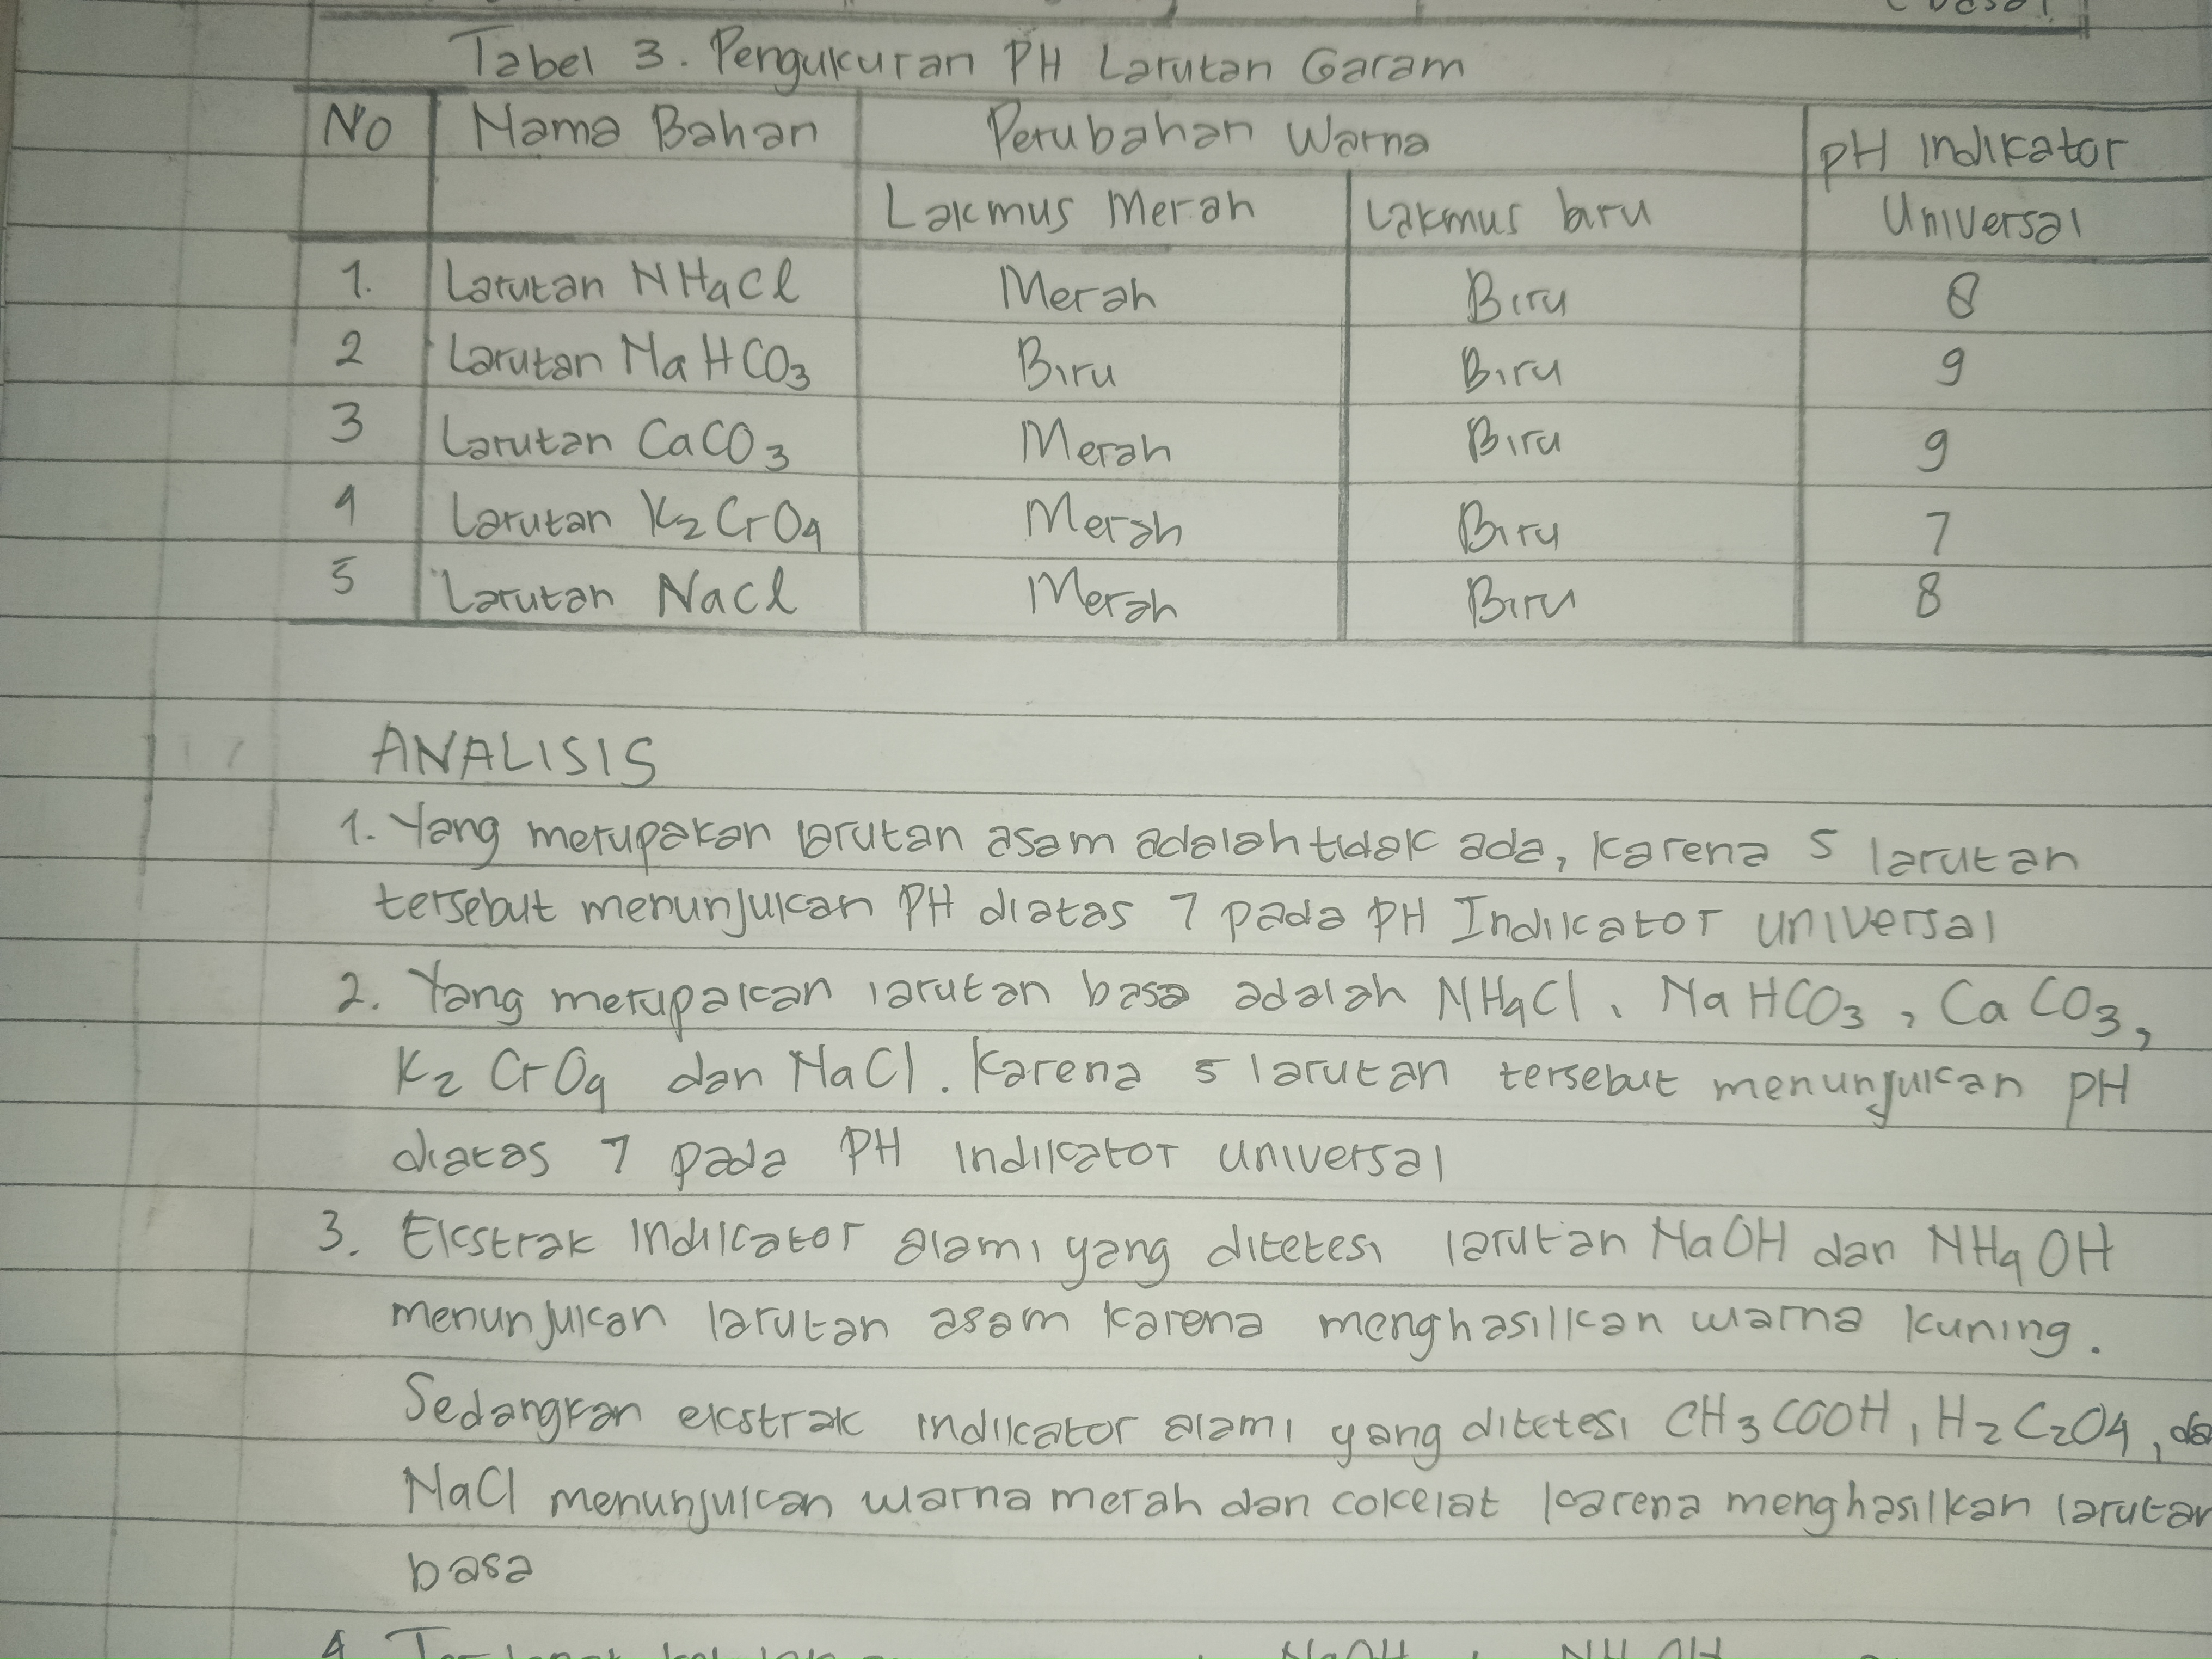 Tabel 3. Pengukuran PH Larutan Garam
No Nama Bahan Perubahan Warna pH Indikator
Lakmus Merah Lakmus biru Universal
1. Larutan NH4Cl Merah Biru 8
2 Larutan NaHCO3 Biru Biru 9
3 Larutan CaCO3 Merah Biru 9
4 Larutan K2CrO4 Merah Biru 7
5 Larutan NaCl Merah Biru 8
ANALISIS
1. Yang merupakan larutan asam adalah tidak ada, karena 5 larutan
tersebut menunjukan PH diatas 7 pada PH Indikator universal
2. Yang merupakan larutan basa adalah NH4Cl, NaHCO3, CaCO3,
K2CrO4 dan NaCl. Karena 5 larutan tersebut menunjukan pH
diatas 7 pada PH indikator universal
3. Ekstrak indikator alami yang ditetesi larutan NaOH dan NH4OH
menunjukan larutan asam karena menghasilkan warna kuning.
Sedangkan ekstrak indikator alami yang ditetesi CH3COOH, H2C2O4, da
NaCl menunjukan warna merah dan cokelat karena menghasilkan larutan
basa
4